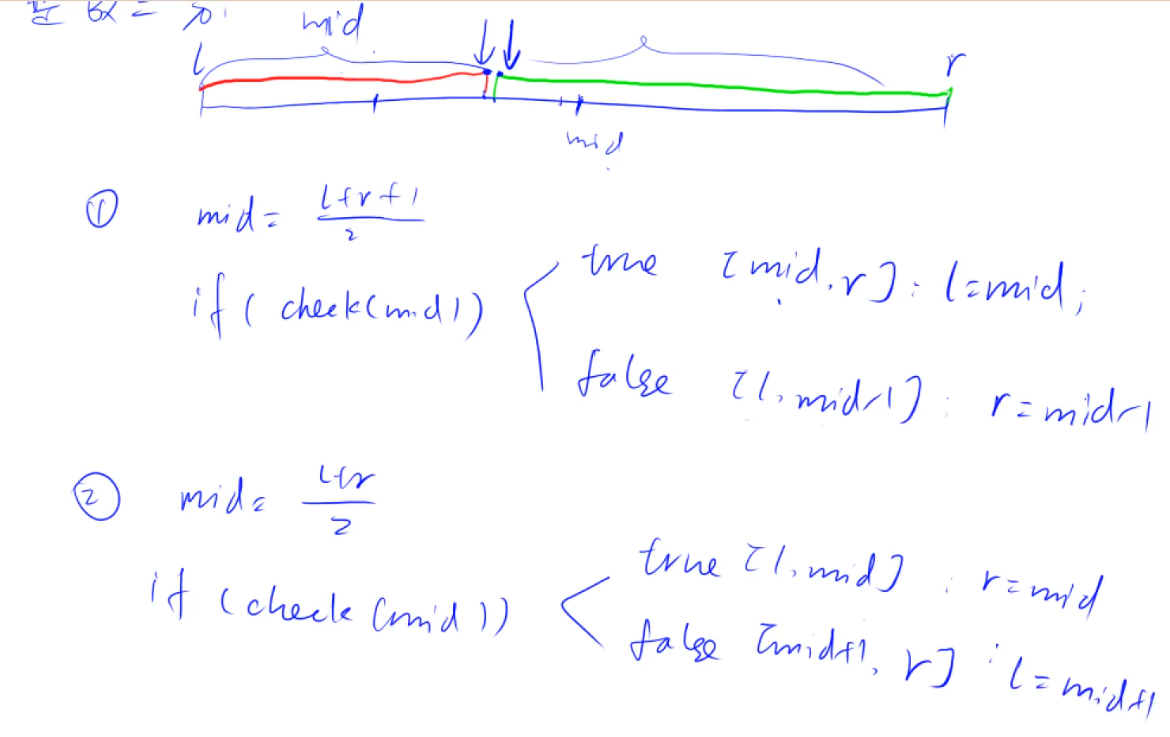 整数二分
mid
l
r
mid
① mid = (l+r+1)/2
if ( check(mid) )
true [mid, r] : l=mid;
false [l, mid-1] : r=mid-1
② mid = (l+r)/2
if (check (mid))
true [l, mid] : r=mid
false [mid+1, r] : l=mid+1